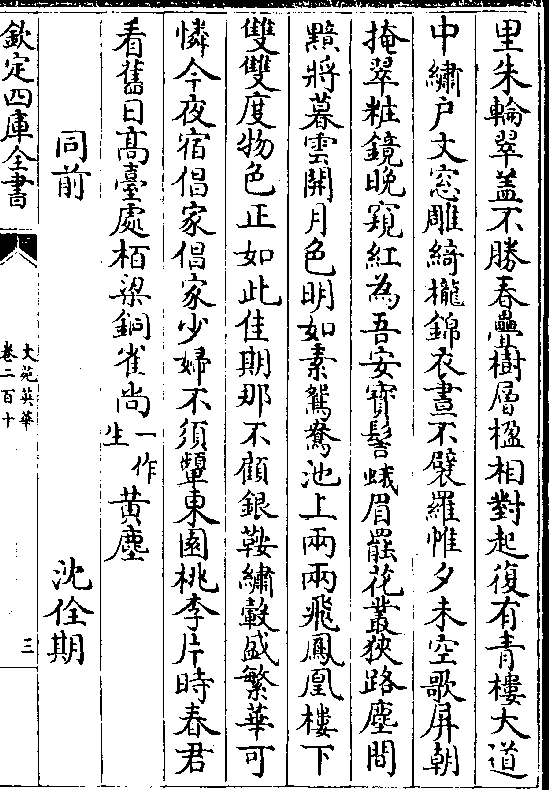 里朱輪翠蓋不勝春疊樹層楹相對起復有青樓大道
中繡戸文窓雕綺櫳錦衣晝不襞羅帷夕未空歌屏朝
掩翠粧鏡晚窺紅為吾安寳髻蛾眉罷花叢狹路塵間
黯將暮雲開月色明如素鴛鴦池上兩兩飛鳳凰樓下
雙雙度物色正如此佳期那不顧銀鞍繡轂盛繁華可
憐今夜宿倡家倡家少婦不須顰東園桃李片時春君
看舊日髙臺處栢梁銅雀尚一作生黄塵
同前 沈佺期
欽定四庫全書
文苑英華
卷二百十
三